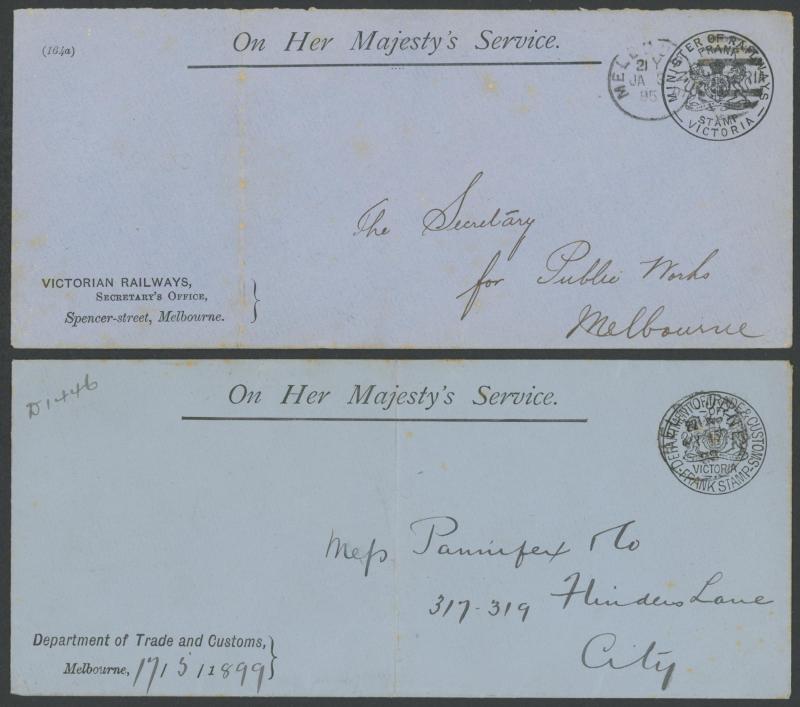 (164a)
On Her Majesty's Service.
MELB
21
JA
95
MINISTER OF RAILWAYS
FRANK
STAMP
VICTORIA
The Secretary
for Public Works
Melbourne
VICTORIAN RAILWAYS,
SECRETARY'S OFFICE,
Spencer-street, Melbourne.
D1446
On Her Majesty's Service.
DEPARTMENT OF TRADE & CUSTOMS
VICTORIA
FRANK STAMP
Mess Pannifex & Co
317-319 Flinders Lane
City
Department of Trade and Customs,
Melbourne, 17/5/1899